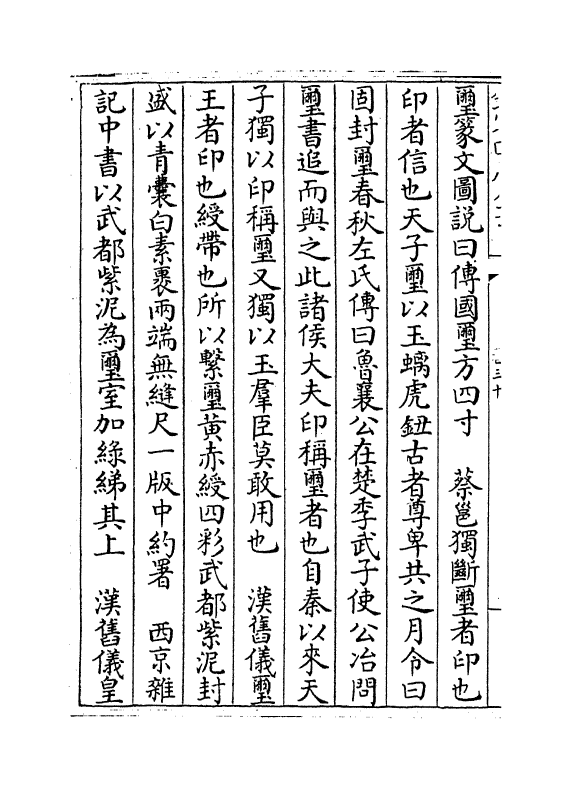 璽篆文圖説曰傳國璽方四寸　蔡邕獨斷璽者印也
印者信也天子璽以玉螭虎鈕古者尊卑共之月令曰
固封璽春秋左氏傳曰魯襄公在楚季武子使公冶問
璽書追而與之此諸侯大夫印稱璽者也自秦以來天
子獨以印稱璽又獨以玉羣臣莫敢用也　漢舊儀璽
王者印也綬帶也所以繫璽黄赤綬四彩武都紫泥封
盛以青囊白素裹兩端無縫尺一版中約署　西京雜
記中書以武都紫泥為璽室加綠綈其上　漢舊儀皇